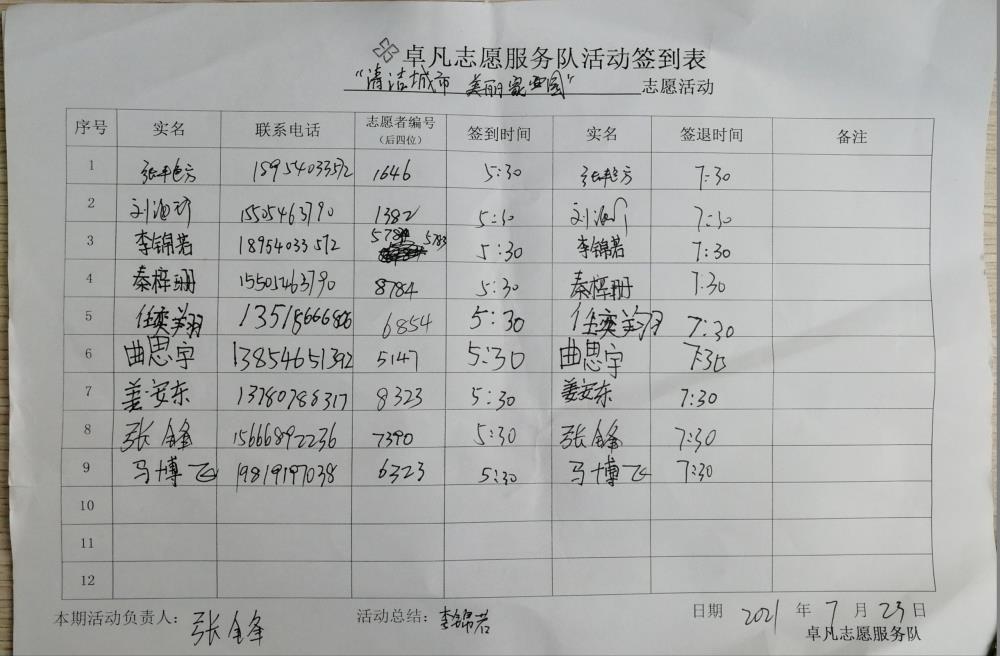 卓凡志愿服务队活动签到表
“清洁城市 美丽家园”志愿活动
序号 实名 联系电话 志愿者编号（后四位） 签到时间 实名 签退时间 备注
1 18954033572 1646 5:30 7:30
2 15505463790 1382 5:30 7:30
3 李锦若 18954033572 5783 5:30 李锦若 7:30
4 秦梓珊 15505463790 8784 5:30 秦梓珊 7:30
5 任奕翔 6854 5:30 任奕翔 7:30
6 曲思宇 13854651392 5147 5:30 曲思宇 7:30
7 姜安东 13780788317 8323 5:30 姜安东 7:30
8 张锋 15666892236 7390 5:30 张锋 7:30
9 马博飞 19819197038 6323 5:30 马博飞 7:30
10
11
12
本期活动负责人：张锋 活动总结：李锦若 日期 2021 年 7 月 23 日
卓凡志愿服务队